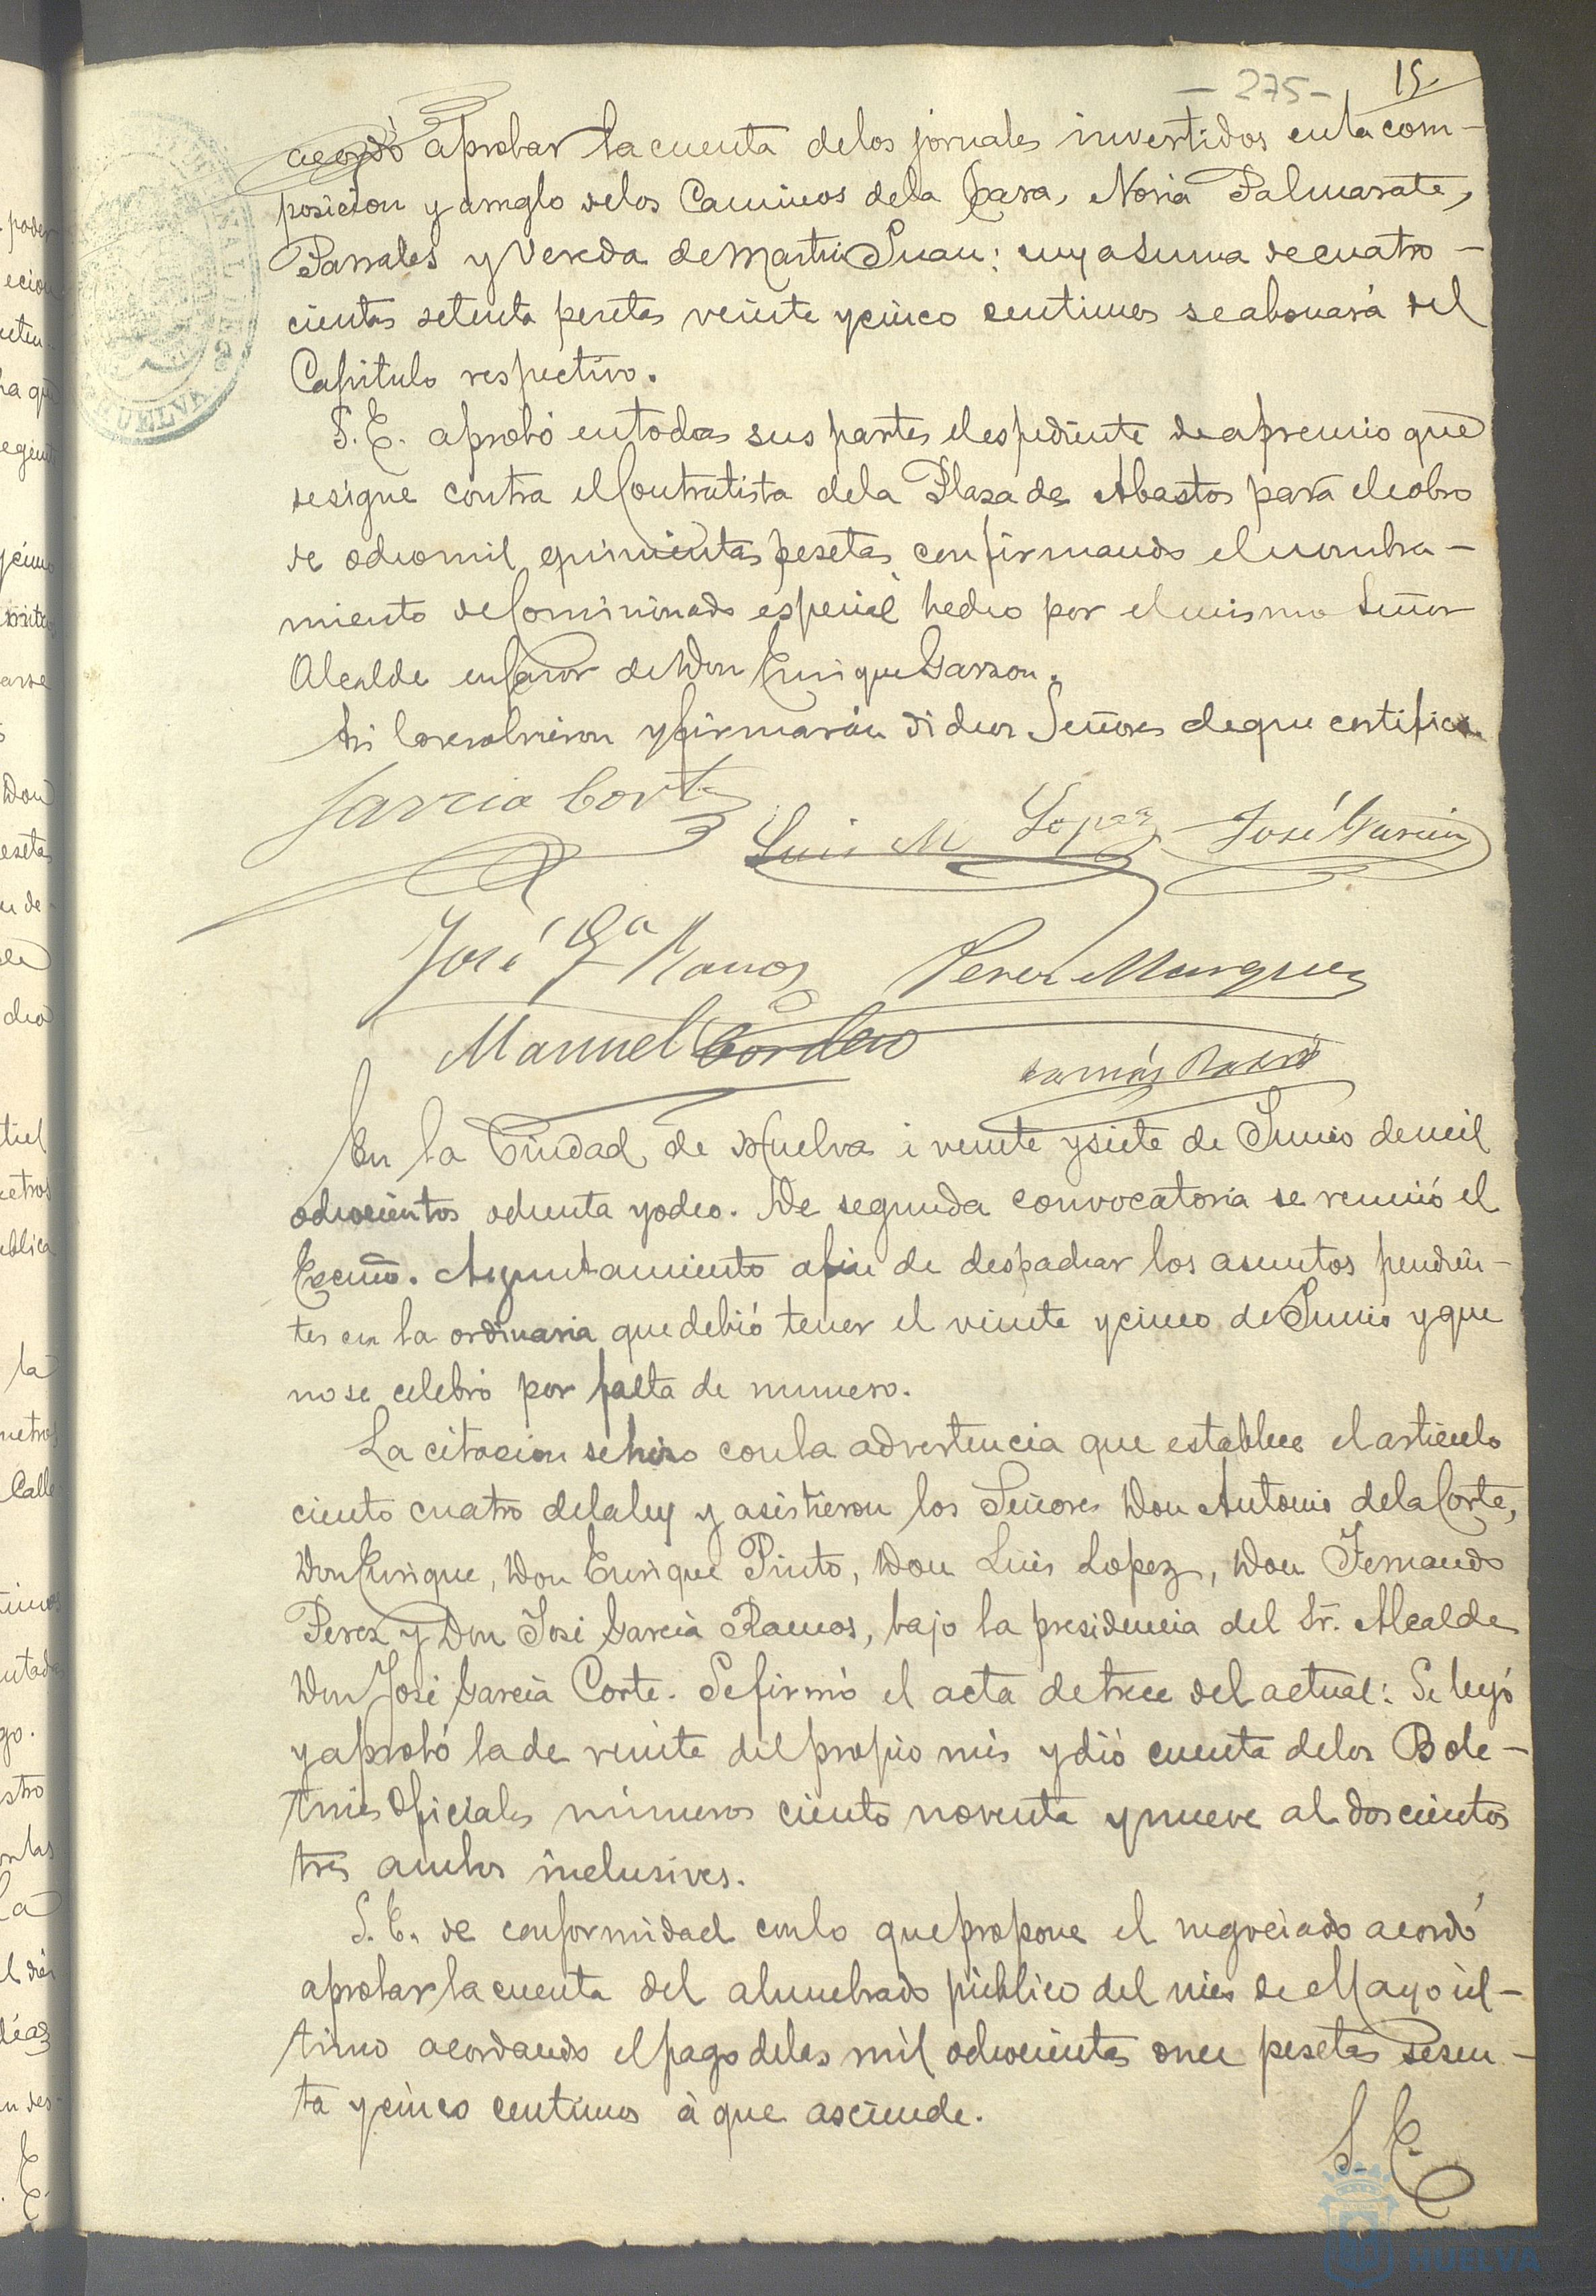 - 275 - 15
acordó aprobar la cuenta de los jornales invertidos en la com-
posicion y arreglo de los Caminos de la Casa, Noria Palmarate,
Parrales y Vereda de Martin Juan; cuya suma de cuatro-
cientas setenta pesetas veinte y cinco centimos se abonará del
Capitulo respectivo.
S. E. aprobó en todas sus partes el espediente de apremio que
se sigue contra el Contratista de la Plaza de Abastos para el cobro
de ocho mil quinientas pesetas confirmando el nombra-
miento de Comisionado especial hecho por el mismo Señor
Alcalde en favor de Don Enrique Garzon.
Asi lo resolvieron y firmarán dichos Señores de que certifico.
Garcia Corte
Luis M Lopez José Garcia
José Ga Ramos Perez Marquez
Manuel Cordero
Tomás
En la Ciudad de Huelva á veinte y siete de Junio de mil
ochocientos ochenta y ocho. De segunda convocatoria se reunió el
Excmo. Ayuntamiento a fin de despachar los asuntos pendien-
tes en la ordinaria que debió tener el veinte y cinco de Junio y que
no se celebró por falta de numero.
La citacion se hizo con la advertencia que establece el articulo
ciento cuatro de la ley y asistieron los Señores Don Antonio de la Corte,
Don Enrique, Don Enrique Pinto, Don Luis Lopez, Don Fernando
Perez y Don José Garcia Ramos, bajo la presidencia del Sr. Alcalde
Don José Garcia Corte. Se firmó el acta de trece del actual: Se leyó
y aprobó la de veinte del propio mes y dió cuenta de los Bole-
tines Oficiales números ciento noventa y nueve al doscientos
tres ambos inclusives.
S. E. de conformidad con lo que propone el negociado acordó
aprobar la cuenta del alumbrado público del mes de Mayo úl-
timo acordando el pago de las mil ochocientas once pesetas sesen-
ta y cinco centimos á que asciende.
S. E.
HUELVA